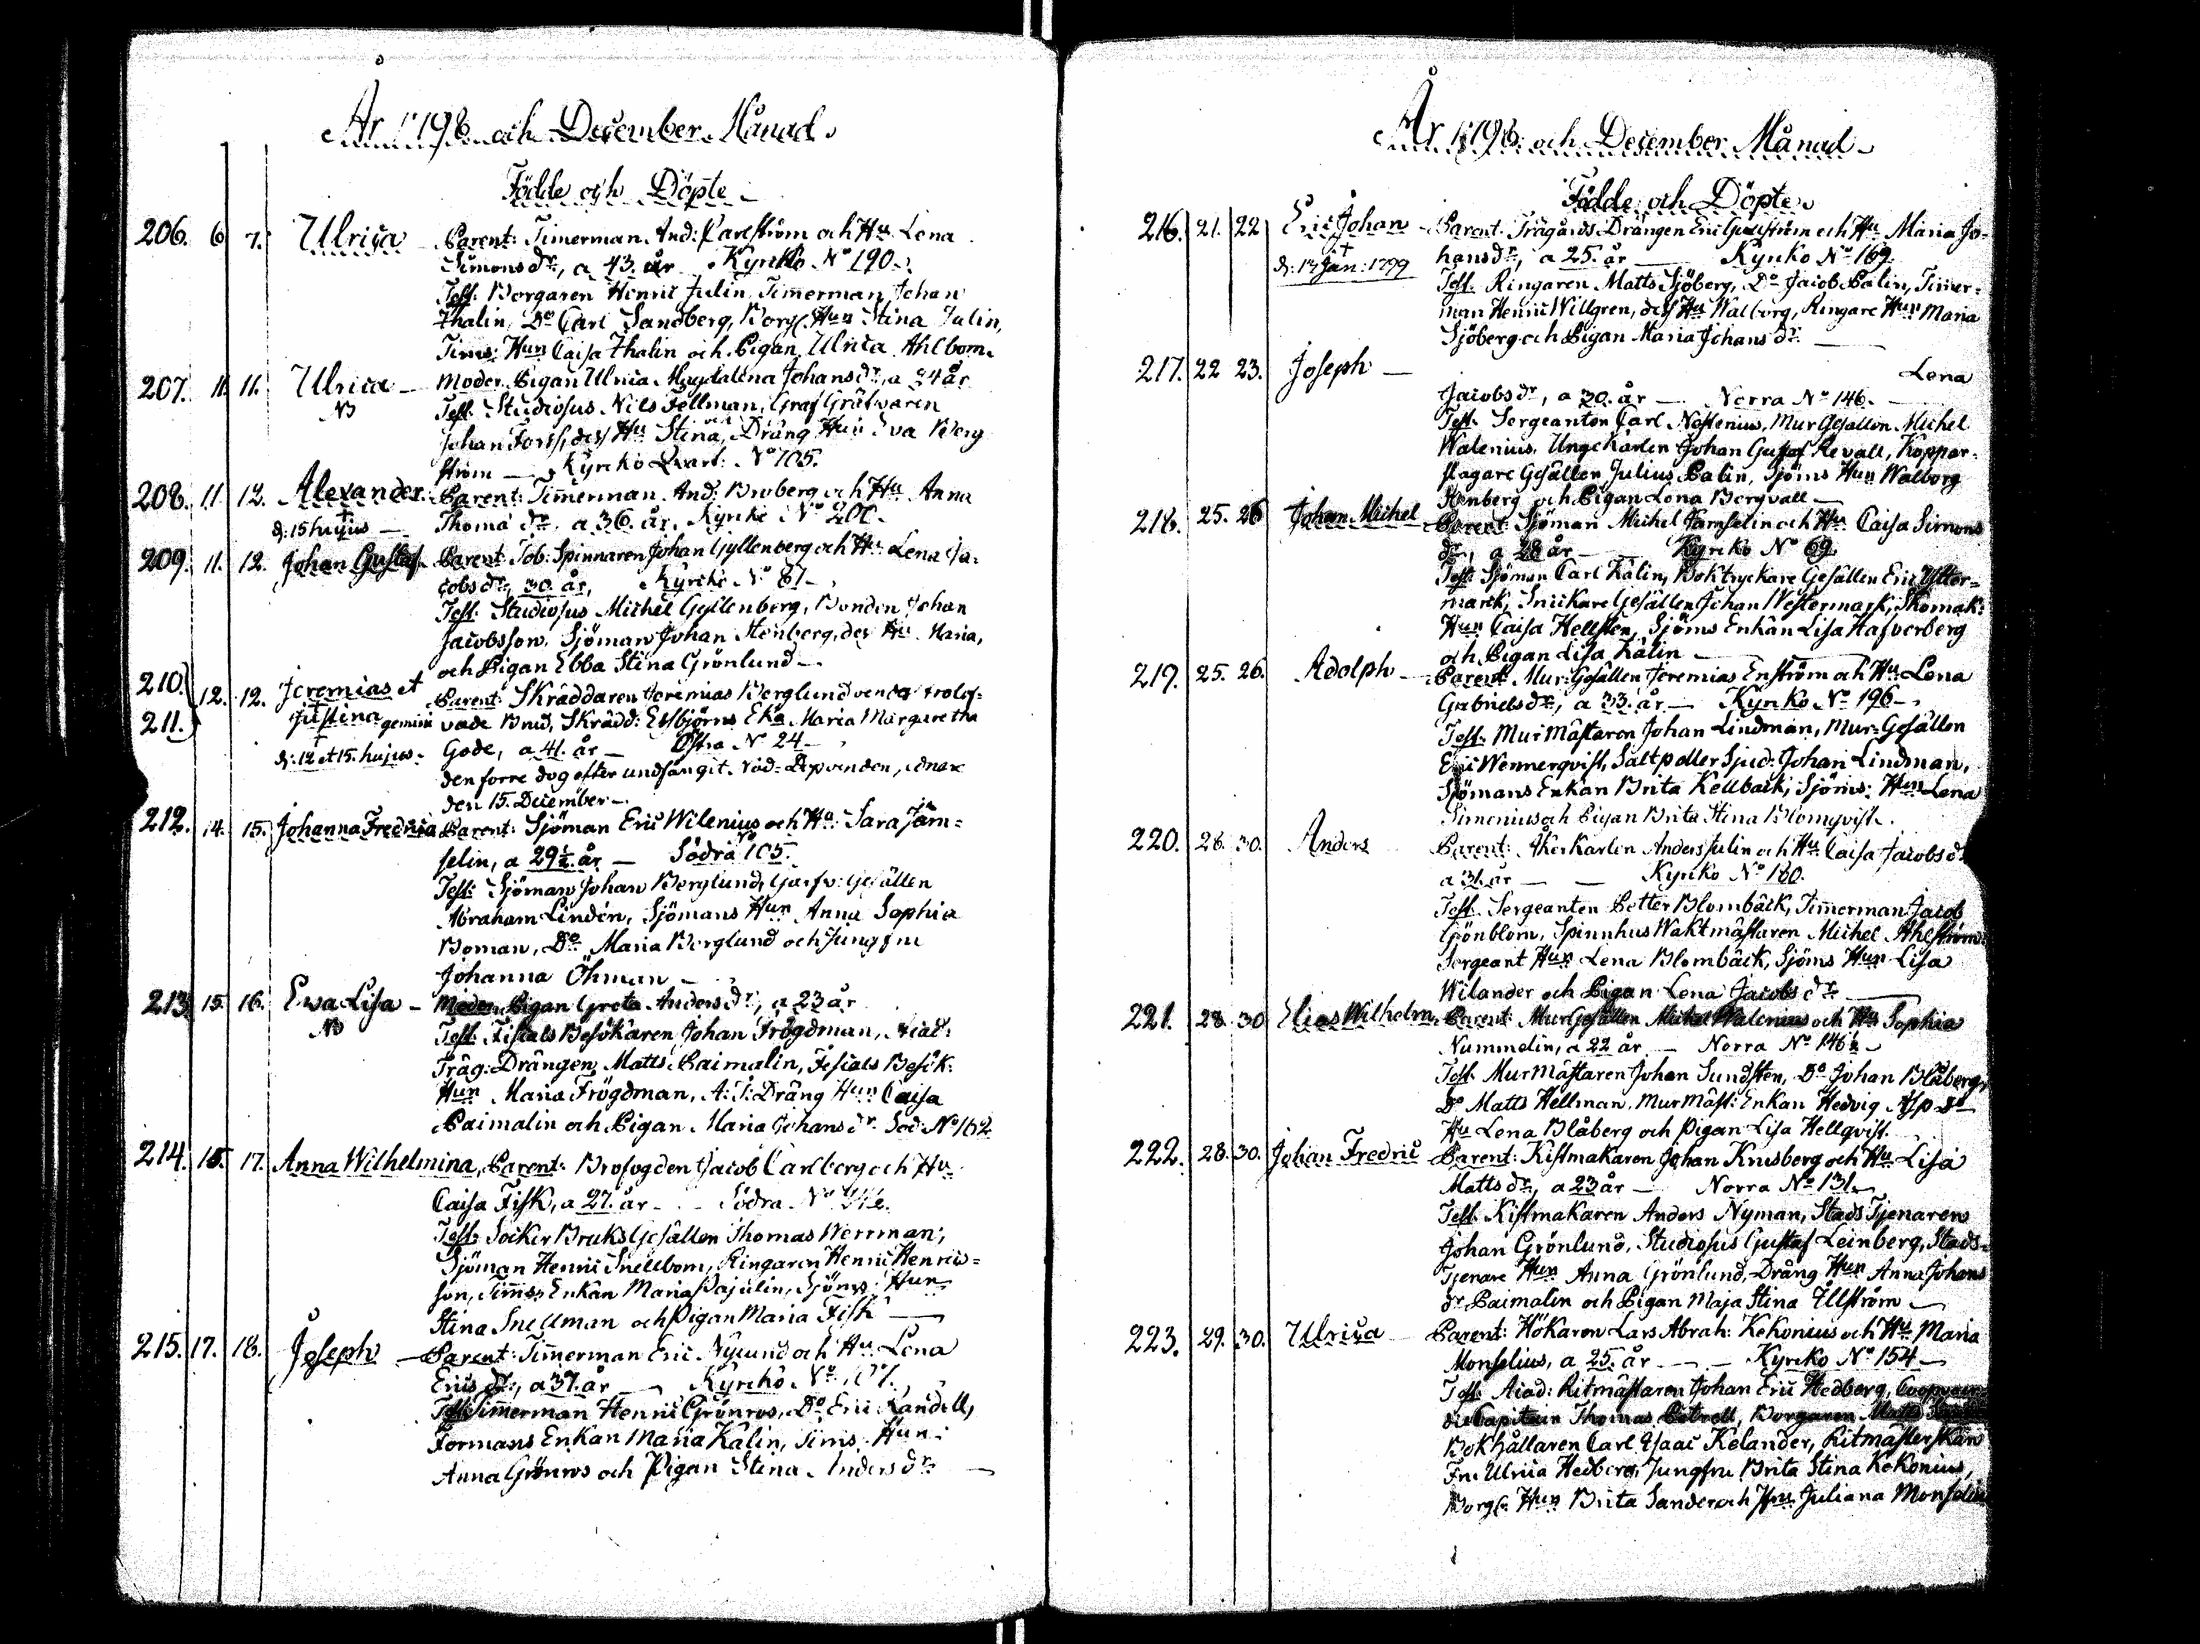 År 1798 och December Månad.
Födde och Döpte
206. 6 7. Ulrica Parent: Timerman And: Carlström och Hu Lena
Simons dr, a 43. år Kyrko No 190.
Test. Borgaren Henric Julin, Timerman Johan
Thalin, Do Carl Sandberg, Borg: Hun Stina Julin,
Tims: Hun Caisa Thalin och Pigan Ulrica Ahlbom.
207. 11. 11. Ulrica Moder Pigan Ulrica Magdalena Johans dr, a 24 år
NB Test. Studiosus Nils Fellman, Graf Gräfwaren
Johan Forss, dess Hu Stina, och Dräng Hun Eva Berg
ström Kyrko Qvart: No 105.
208. 11. 12. Alexander. Parent: Timerman And: Broberg och Hu Anna
† d: 15 hujus Thomæ dr. a 36. år. Kyrko No 200.
209. 11. 12. Johan Gustaf Parent: Tob: Spinnaren Johan Gyllenberg och Hu Lena Ja-
cobs dr, 30. år, Kyrko No 87
Test. Studiosus Michel Gyllenberg, Bonden Johan
Jacobsson, Sjöman Johan Stenberg, des Hu Maria,
och Pigan Ebba Stina Grönlund
210. 12. 12. Jeremias et Parent: Skräddaren Jeremias Berglund och trolof-
211. Justina gemini vade Brud, Skrädd: Essbjörns Eka Maria Margaretha
† d: 12 et 15. hujus. Gode, a 41. år Östra No 24
den förre dog efter undfångit Nöd-Döp den senare
den 15. December
212. 14. 15. Johanna Fredrica Parent: Sjöman Eric Wilenius och Hu Sara Jäm=
selin, a 29 1/2 år Södra No 105.
Test: Sjöman Johan Berglund, Garfv: Gesällen
Abraham Lindén, Sjömans Hun Anna Sophia
Boman, Do Maria Berglund och Jungfru
Johanna Öhman
213. 15. 16. Ewa Lisa Moder Pigan Greta Anders dr, a 23 år
NB Test: Fiscals Besökaren Johan Frögdman, Acad:
Träg: Drängen Matts Paimalin, Fiscals Besök:
Hun Maria Frögdman, A: T: Dräng Hun Caisa
Paimalin och Pigan Maria Johans dr Söd: No 162
214. 15. 17. Anna Wilhelmina, Parent: Brofogden Jacob Carlberg och Hu
Caisa Fisk, a 27. år Södra No
Test: Socker Bruks Gesällen Thomas Werrman,
Sjöman Henric Snellbom, Ringaren Henric Henrics=
son, Tims: Enkan Maria Pajulin, Sjöms: Hun
Stina Snellman och Pigan Maria Fisk
215. 17. 18. Joseph Parent: Timerman Eric Nylund och Hu Lena
Erics dr, a 37. år Kyrko No
Test: Timerman Henric Grönros, Do Eric Randell,
Formans Enkan Maria Kalin, Tims: Hun
Anna Grönros och Pigan Stina Anders dr
År 1798 och December Månad
Födde och Döpte
216. 21. 22 Eric Johan Parent: Trägårds Drängen Eric Qviström och Hu Maria Jo-
† d: 14 Jan: 1799 hans dr, a 25. år Kyrko No 169.
Test. Ringaren Matts Sjöberg, Do Jacob Palin, Timer-
man Henric Willgren, dess Hu Walborg, Ringare Hun Maria
Sjöberg och Pigan Maria Johans dr
217. 22 23. Joseph Lena
Jacobs dr, a 30. år Norra No 146.
Test. Sergeanten Carl Nostenius, Mur Gesällen Michel
Walenius, Unge Karlen Johan Gustaf Revall, Koppar-
slagare Gesällen Julius Palin, Sjöms Hun Walborg
Stenberg och Pigan Lena Bergvall
218. 25. 26 Johan Michel Parent: Sjöman Michel Jamselin och Hu Caisa Simons
dr, a 28 år Kyrko No 69.
Test: Sjöman Carl Kalin, Boktryckare Gesällen Eric Ytter=
mark, Snickare Gesällen Johan Westermark, Skomak:
Hun Caisa Hellsten, Sjöms Enkan Lisa Hafverberg
och Pigan Lisa Kalin
219. 25. 26. Adolph Parent: Mur: Gesällen Jeremias Enström och Hu Lena
Gabriels dr, a 33. år Kyrko No 196
Test. Mur Mästaren Johan Lindman, Mur: Gesällen
Eric Wennerqvist, Saltpetter Sjud: Johan Lindman,
Sjömans Enkan Brita Kellback, Sjöms: Hun Lena
Simenius och Pigan Brita Stina Blomqvist.
220. 28. 30. Anders Parent: Åker Karlen Anders Julin och Hu Caisa Jacobs dr
a 31. år Kyrko No 180.
Test. Sergeanten Petter Blombäck, Timerman Jacob
Grönblom, Spinnhus Waktmästaren Michel Ahlström
Sergeant Hun Lena Blombäck, Sjöms Hun Lisa
Wilander och Pigan Lena Jacobs dr
221. 28. 30 Elias Wilhelm. Parent: Mur Gesällen Michel Walenius och Hu Sophia
Nummelin, a 22 år Norra No 146 1/2
Test. Mur Mästaren Johan Sundsten, Do Johan Blåberg,
Do Matts Hellman, Mur Mäst: Enkan Hedvig Asp Do
Hu Lena Blåberg och Pigan Lisa Hellqvist.
222. 28. 30. Johan Fredric Parent: Kistmakaren Johan Krusberg och Hu Lisa
Matts dr, a 23 år Norra No 131.
Test. Kistmakaren Anders Nyman, Stads Tjenaren
Johan Grönlund, Studiosus Gustaf Leinberg, Stads-
Tjenare Hun Anna Grönlund, Dräng Hun Anna Johans
dr Paimalin och Pigan Maja Stina Ullström
223. 29. 30. Ulrica Parent: Hökaren Lars Abrah: Kekonius och Hu Maria
Monselius, a 25. år Kyrko No 154
Test. Acad: Ritmästaren Johan Eric Hedberg, Coopvær-
die Capitain Thomas Petrell, Borgaren Matts
Bokhållaren Carl Isaac Kelander, Ritmästerskan
Fru Ulrica Hedberg, Jungfru Brita Stina Kekonius,
Borg: Hun Brita Sander och Jfru Juliana Monselius